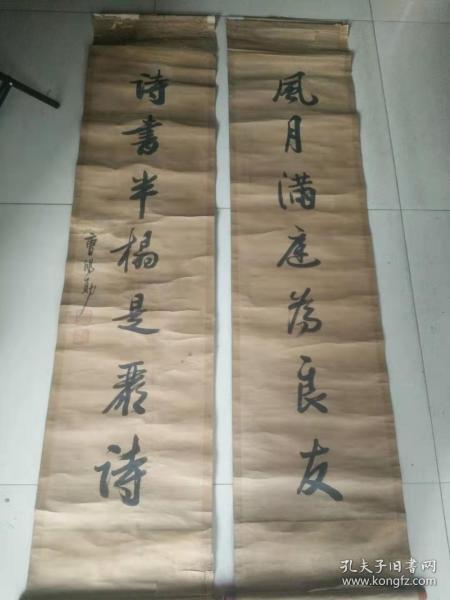 風月滿庭為良友
詩書半榻是嚴詩
曹鴻勛
孔夫子旧书网
www.kongfz.com